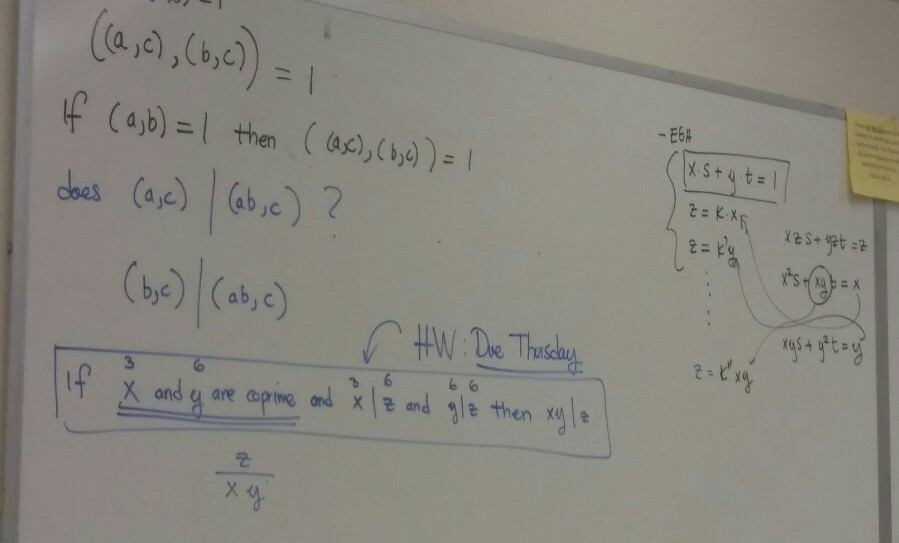 ((a,c),(b,c)) = 1
If (a,b) = 1 then ((a,c),(b,c)) = 1
does (a,c) | (ab,c) ?
(b,c) | (ab,c)
HW: Due Thursday
3 6 3 6 6 6
If x and y are coprime and x|z and y|z then xy|z
z
x y
- EGA
x·s + y·t = 1
z = k·x
z = k'y
z = k" xy
xzs + yzt = z
x²s + xyt = x
xys + y²t = y